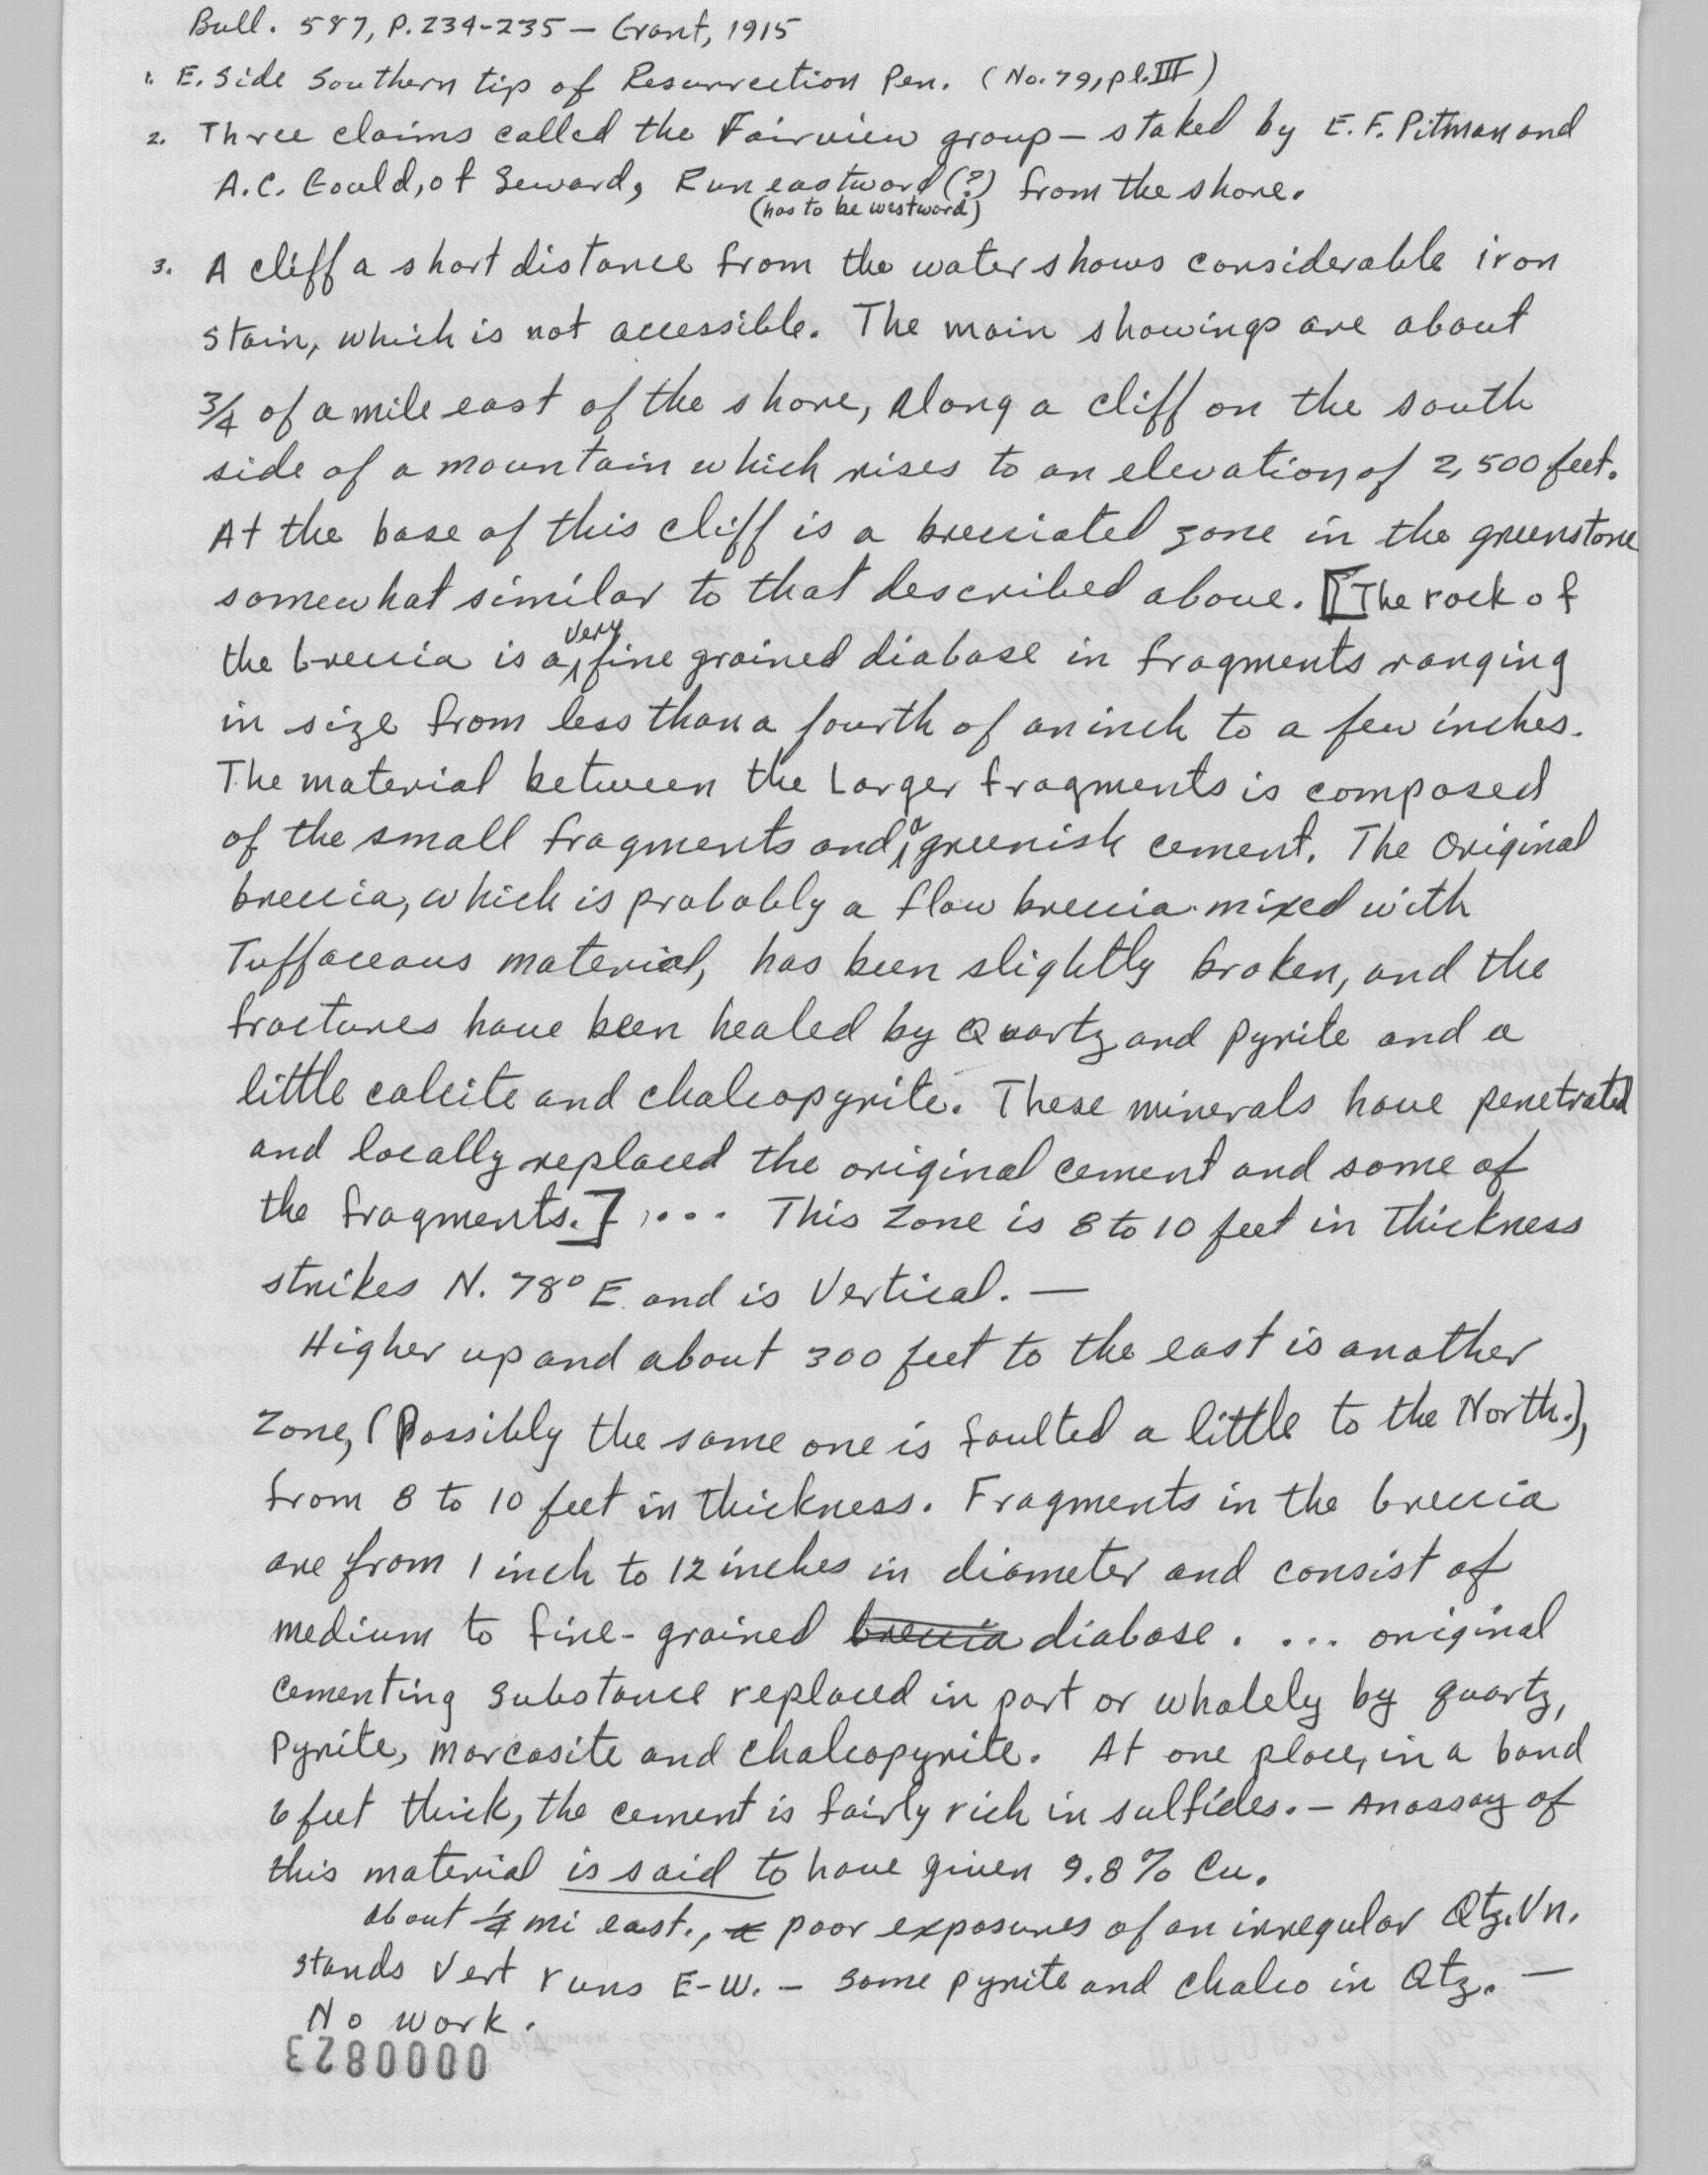 Bull. 587, P. 234-235 — Grant, 1915
1. E. Side Southern tip of Resurrection Pen. (No. 79, pl. III)
2. Three claims called the Fairview group — staked by E. F. Pitman and
A.C. Gould, of Seward, Run eastward (?) from the shore.
(has to be westward)
3. A cliff a short distance from the water shows considerable iron
stain, which is not accessible. The main showings are about
3/4 of a mile east of the shore, along a cliff on the south
side of a mountain which rises to an elevation of 2,500 feet.
At the base of this cliff is a brecciated zone in the greenstone
somewhat similar to that described above. [The rock of
the breccia is a very fine grained diabase in fragments ranging
in size from less than a fourth of an inch to a few inches.
The material between the Larger fragments is composed
of the small fragments and a greenish cement. The Original
breccia, which is probably a flow breccia mixed with
Tuffaceous material, has been slightly broken, and the
fractures have been healed by Quartz and pyrite and a
little calcite and chalcopyrite. These minerals have penetrated
and locally replaced the original cement and some of
the fragments.] .... This zone is 8 to 10 feet in thickness
strikes N. 78° E. and is Vertical. —
Higher up and about 300 feet to the east is another
Zone, (Possibly the same one is faulted a little to the North.),
from 8 to 10 feet in thickness. Fragments in the breccia
are from 1 inch to 12 inches in diameter and consist of
medium to fine-grained breccia diabase. ... original
cementing substance replaced in part or wholely by quartz,
Pyrite, marcasite and chalcopyrite. At one place, in a band
6 feet thick, the cement is fairly rich in sulfides. — An assay of
this material is said to have given 9.8% Cu.
about 1/4 mi east., poor exposures of an irregular Qtz. Vn.
stands Vert runs E-W. — some pyrite and chalco in Qtz. —
No work.
00000823